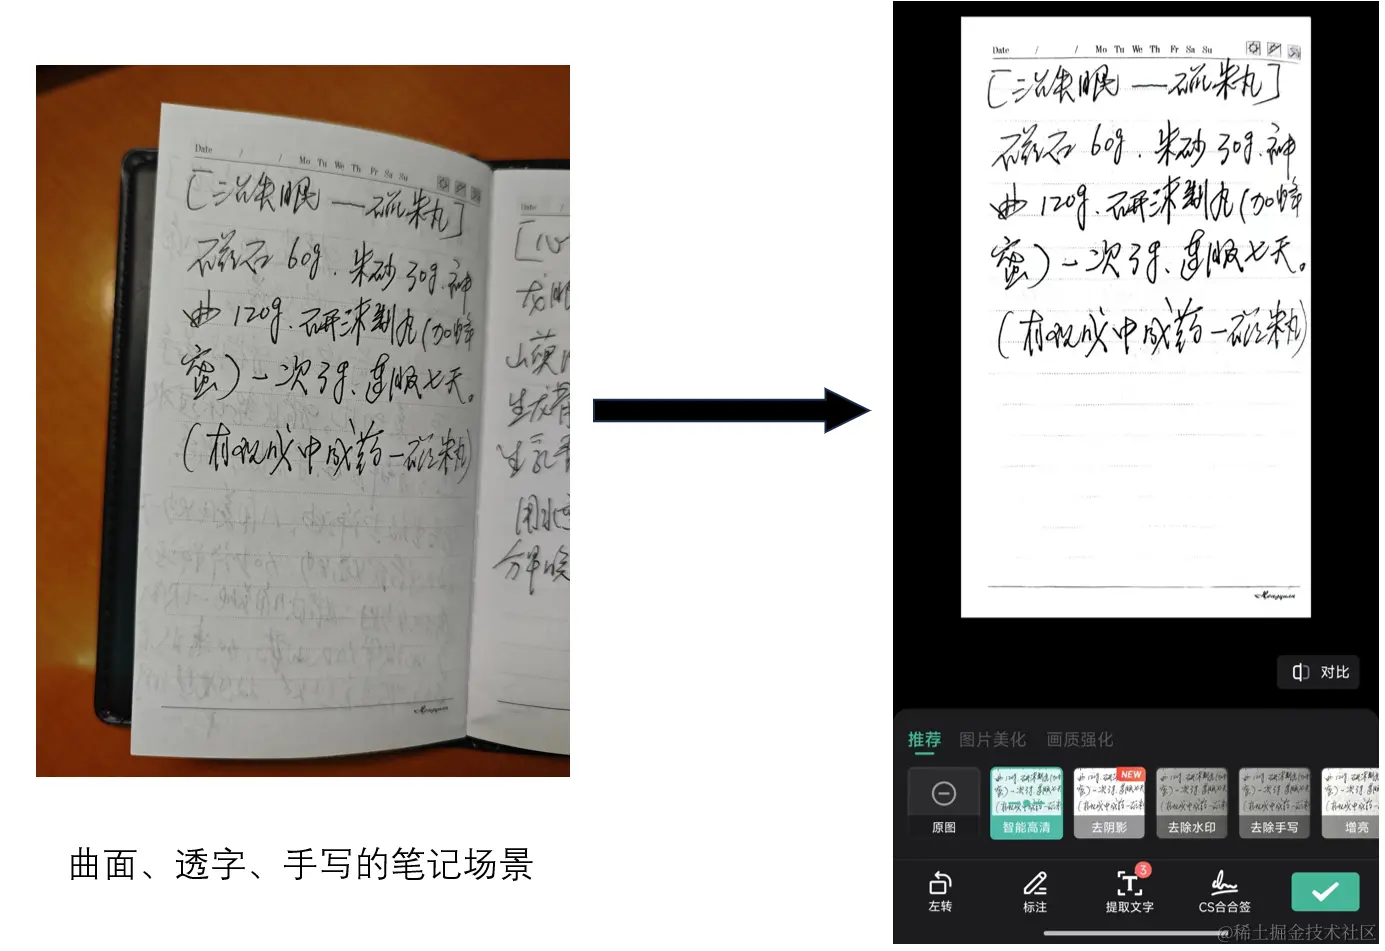 Date / / Mo Tu We Th Fr Sa Su
[治失眠 — 磁朱丸]
磁石 60g. 朱砂 30g. 神
曲 120g. 研沫制丸(加蜂
蜜)一次3g、连服七天。
(有现成中成药—磁朱丸)
Mengquan
Date
[
龙眼
山萸
生龙骨
生乳香
用水
分早晚
曲面、透字、手写的笔记场景
Date / / Mo Tu We Th Fr Sa Su
[治失眠 — 磁朱丸]
磁石 60g. 朱砂 30g. 神
曲 120g. 研沫制丸(加蜂
蜜)一次3g、连服七天。
(有现成中成药—磁朱丸)
Mengquan
对比
推荐 图片美化 画质强化
NEW
原图 智能高清 去阴影 去除水印 去除手写 增亮
3
左转 标注 提取文字 CS合合签
@稀土掘金技术社区